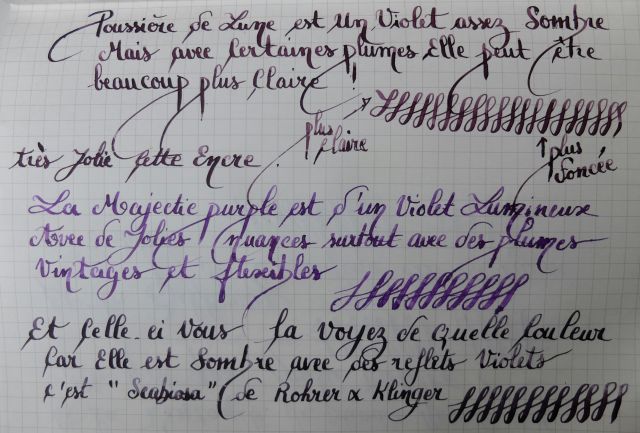 Poussière de Lune est un Violet assez Sombre
Mais avec Certaines plumes Elle peut être
beaucoup plus Claire !
plus
Claire
plus
foncée
très Jolie Cette Encre.
La Majectie purple est d'un Violet Lumineux
Avec de Jolies nuances surtout avec des plumes
Vintages et flexibles
Et Celle-ci Vous la Voyez de quelle Couleur
Car Elle est Sombre avec des reflets Violets
C'est "Scabiosa" de Rohrer & Klinger